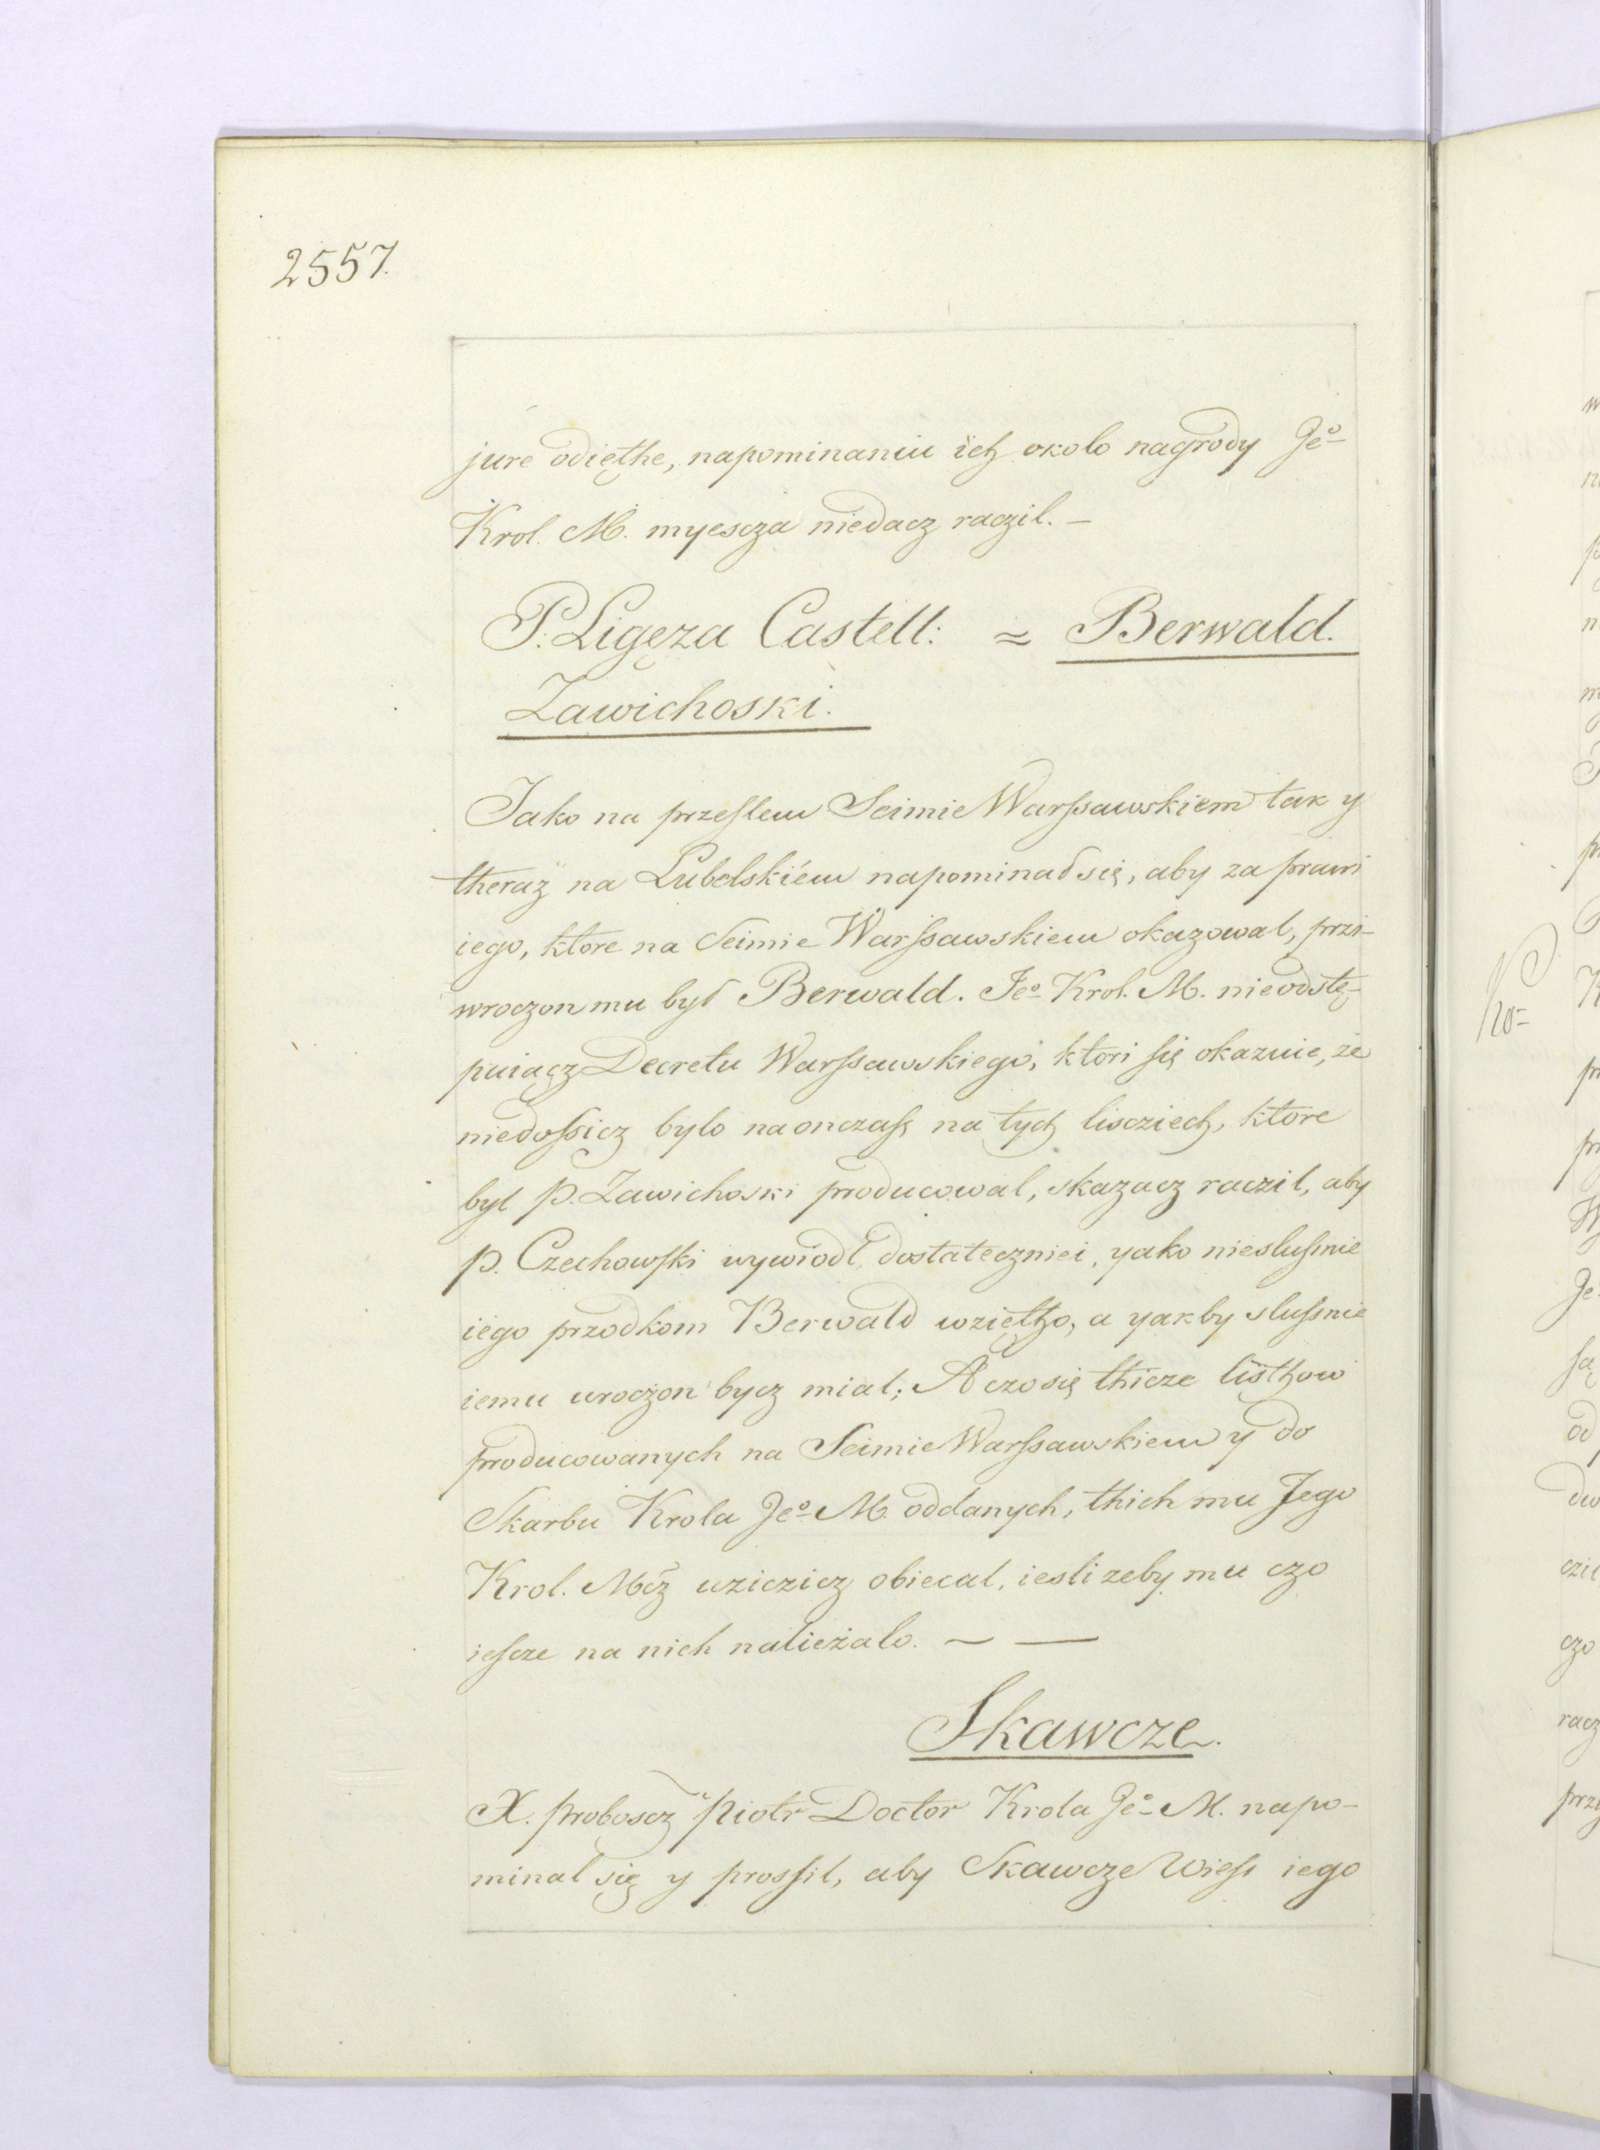 2557.
jure odięthe, napominaniu ich około nagrody Jeº
Krol. M. myescza niedacz raczil. —
P. Ligęza Castell: = Berwald.
Zawichoski.
Jako na przeslem Seimie Warssawskiem tak y
theraz na Lubelskiém napominał się, aby za prawi
iego, ktore na Seimie Warssawskiem okazowal, przi-
wroczon mu był Berwald. Jeº Krol. M. nieodstę-
puiącz Decretu Warssawskiego, ktori się okazuie, że
niedossicz bylo na onczass na tych lisciech, ktore
byl P. Zawichoski producowal, skazacz raczil, aby
P. Czechowski wywiodł dostateczniei, yako nieslusnie
iego przodkom Berwald wziętho, a yakby slusnie
iemu wroczon bycz mial; A czo się thicze listhow
producowanych na Seimie Warssawskiem y do
Skarbu Krola Jeº M. oddanych, thich mu Jego
Krol. Mcz uziczicz obiecal, iesli zeby mu czo
iescze na nich nalieżalo. ~ —
Skawcze.
X. proboscz Piotr Doctor Krola Jeº M. napo-
minał się y prossil, aby Skawcze Wiess iego